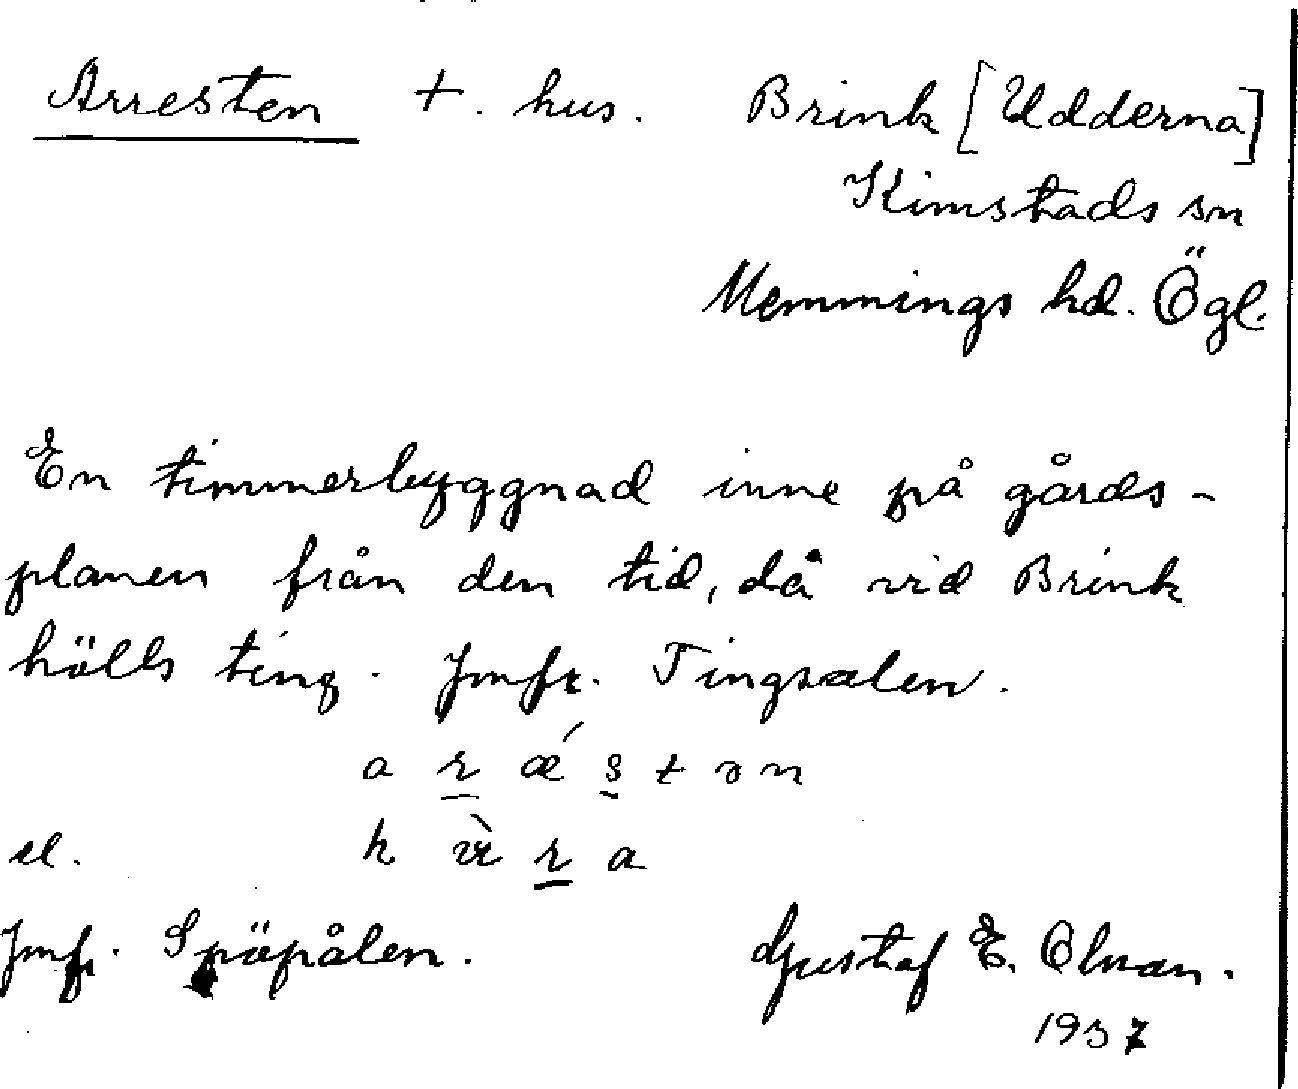 Arresten +. hus. Brink [Udderna]
Kimstads sn
Memmings hd. Ögl.
En timmerbyggnad inne på gårds-
planen från den tid, då vid Brink
hölls ting. Jmfr. Tingsalen.
a r ǽ s t ə n
el.
Jmfr. Spöpålen. Gustaf E. Olman.
1937